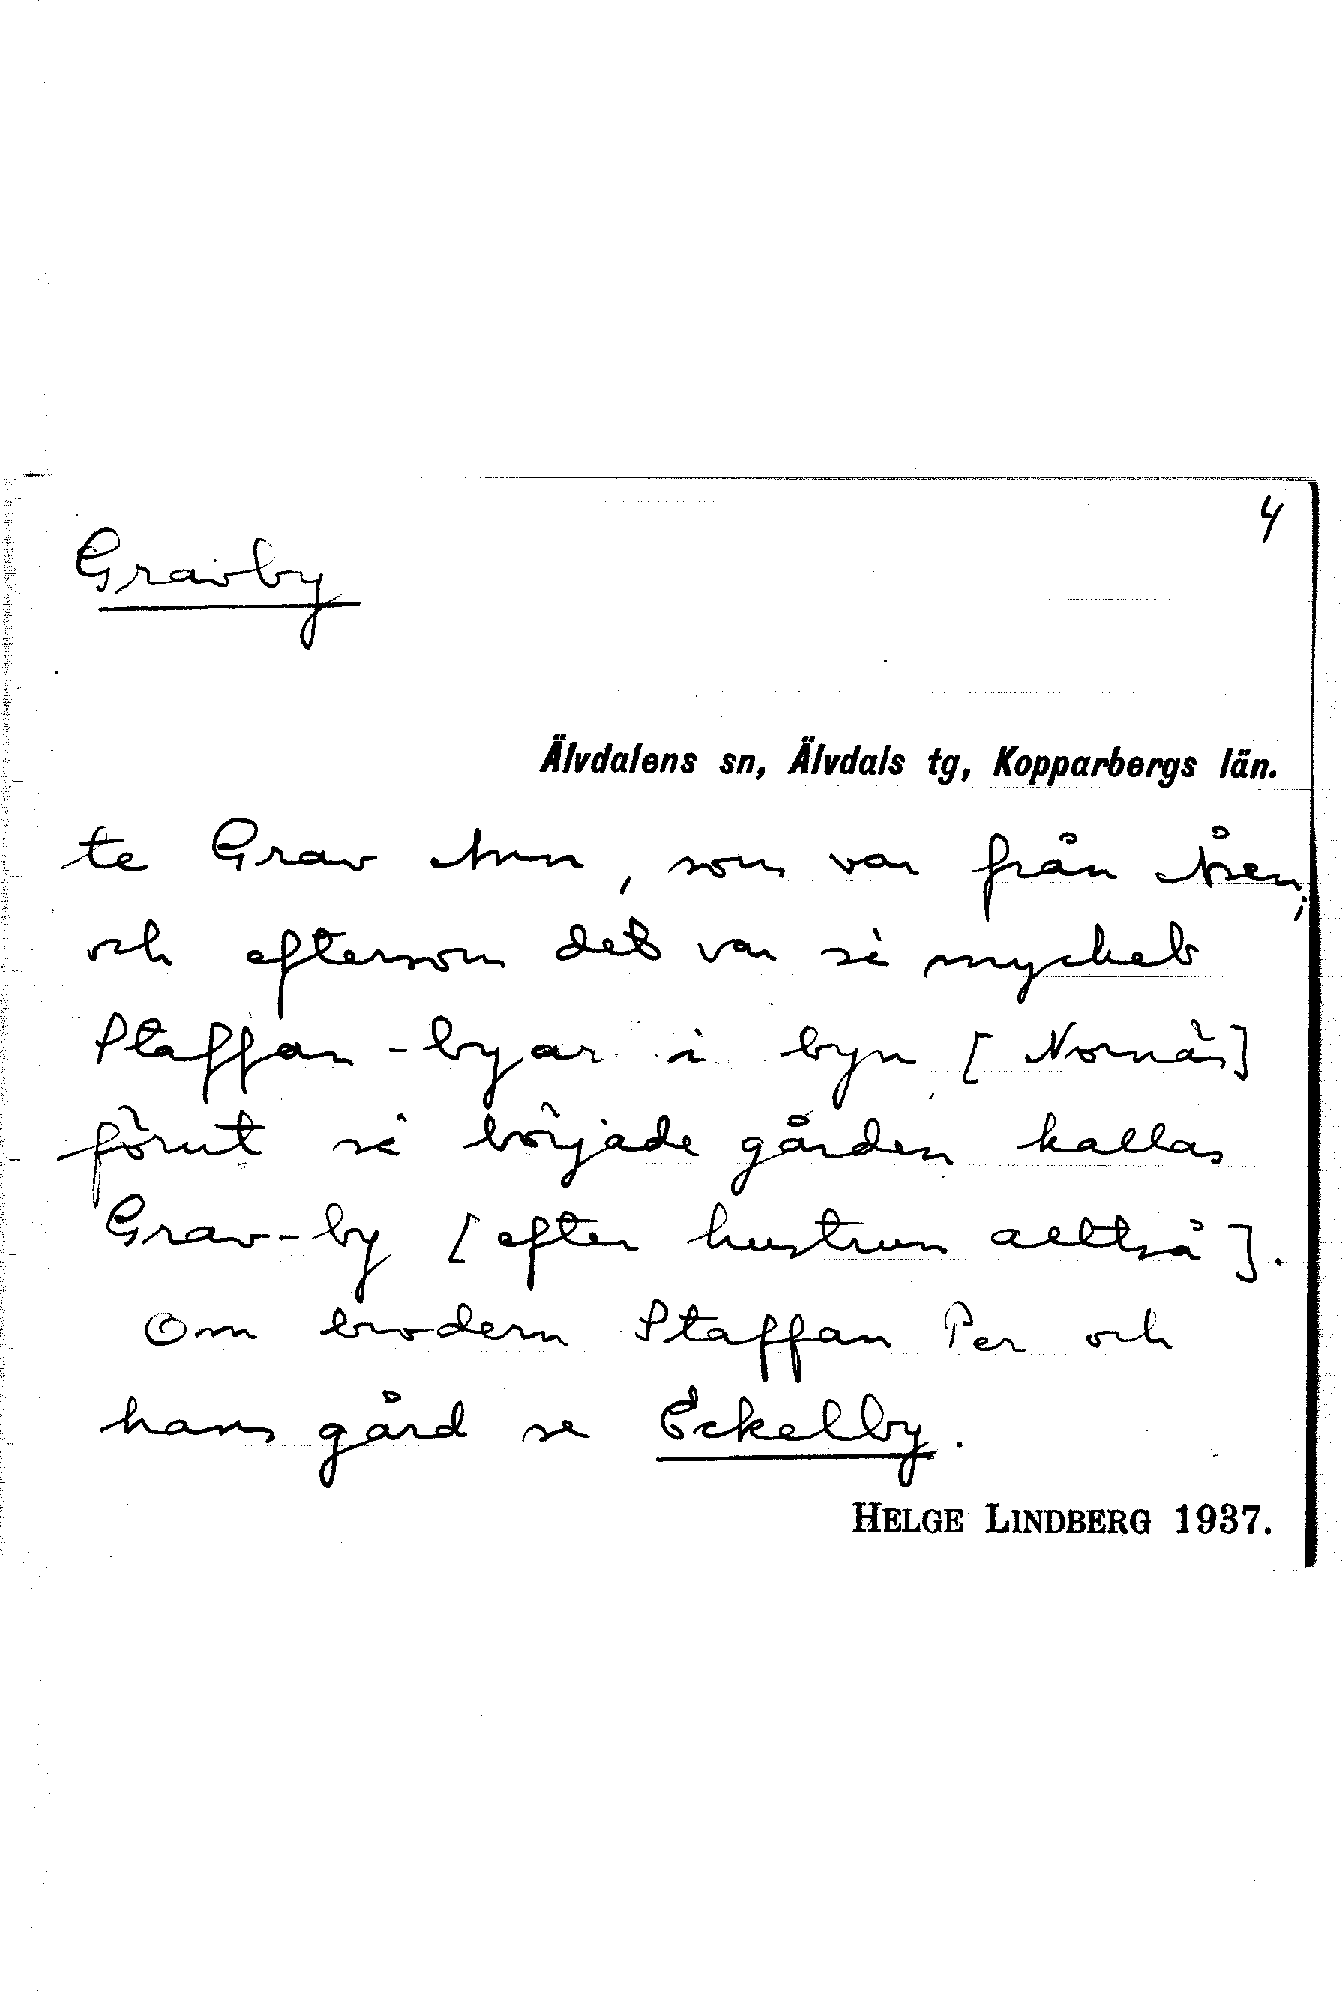 4
Gravby
Älvdalens sn, Älvdals tg, Kopparbergs län.
te Grav Ann, som var från Åsen;
och eftersom det var så mycket
Staffan-byar i byn [Nornäs]
förut så började gården kallas
Grav-by [efter hustrun alltså].
Om brodern Staffan Per och
hans gård se Eckelby.
HELGE LINDBERG 1937.